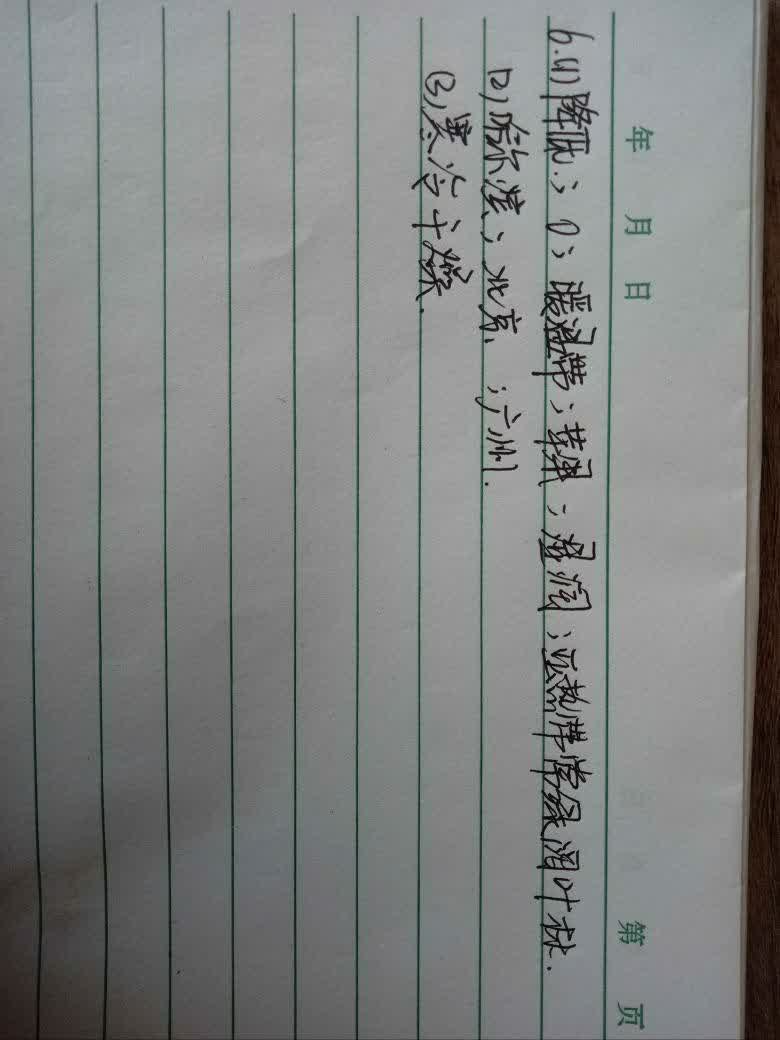 年 月 日
第 页
6.(1)降低；0；暖温带；苹果；湿润；亚热带常绿阔叶林.
(2),哈尔滨；北京；广州.
(3),寒冷干燥.